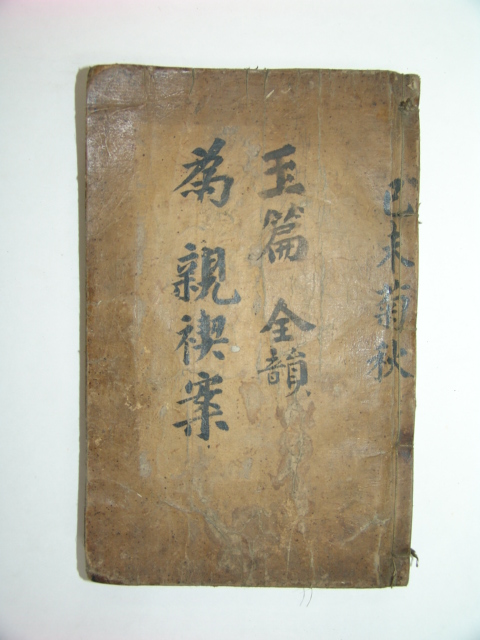 己未菊秋
玉篇 全韻
為親禊案